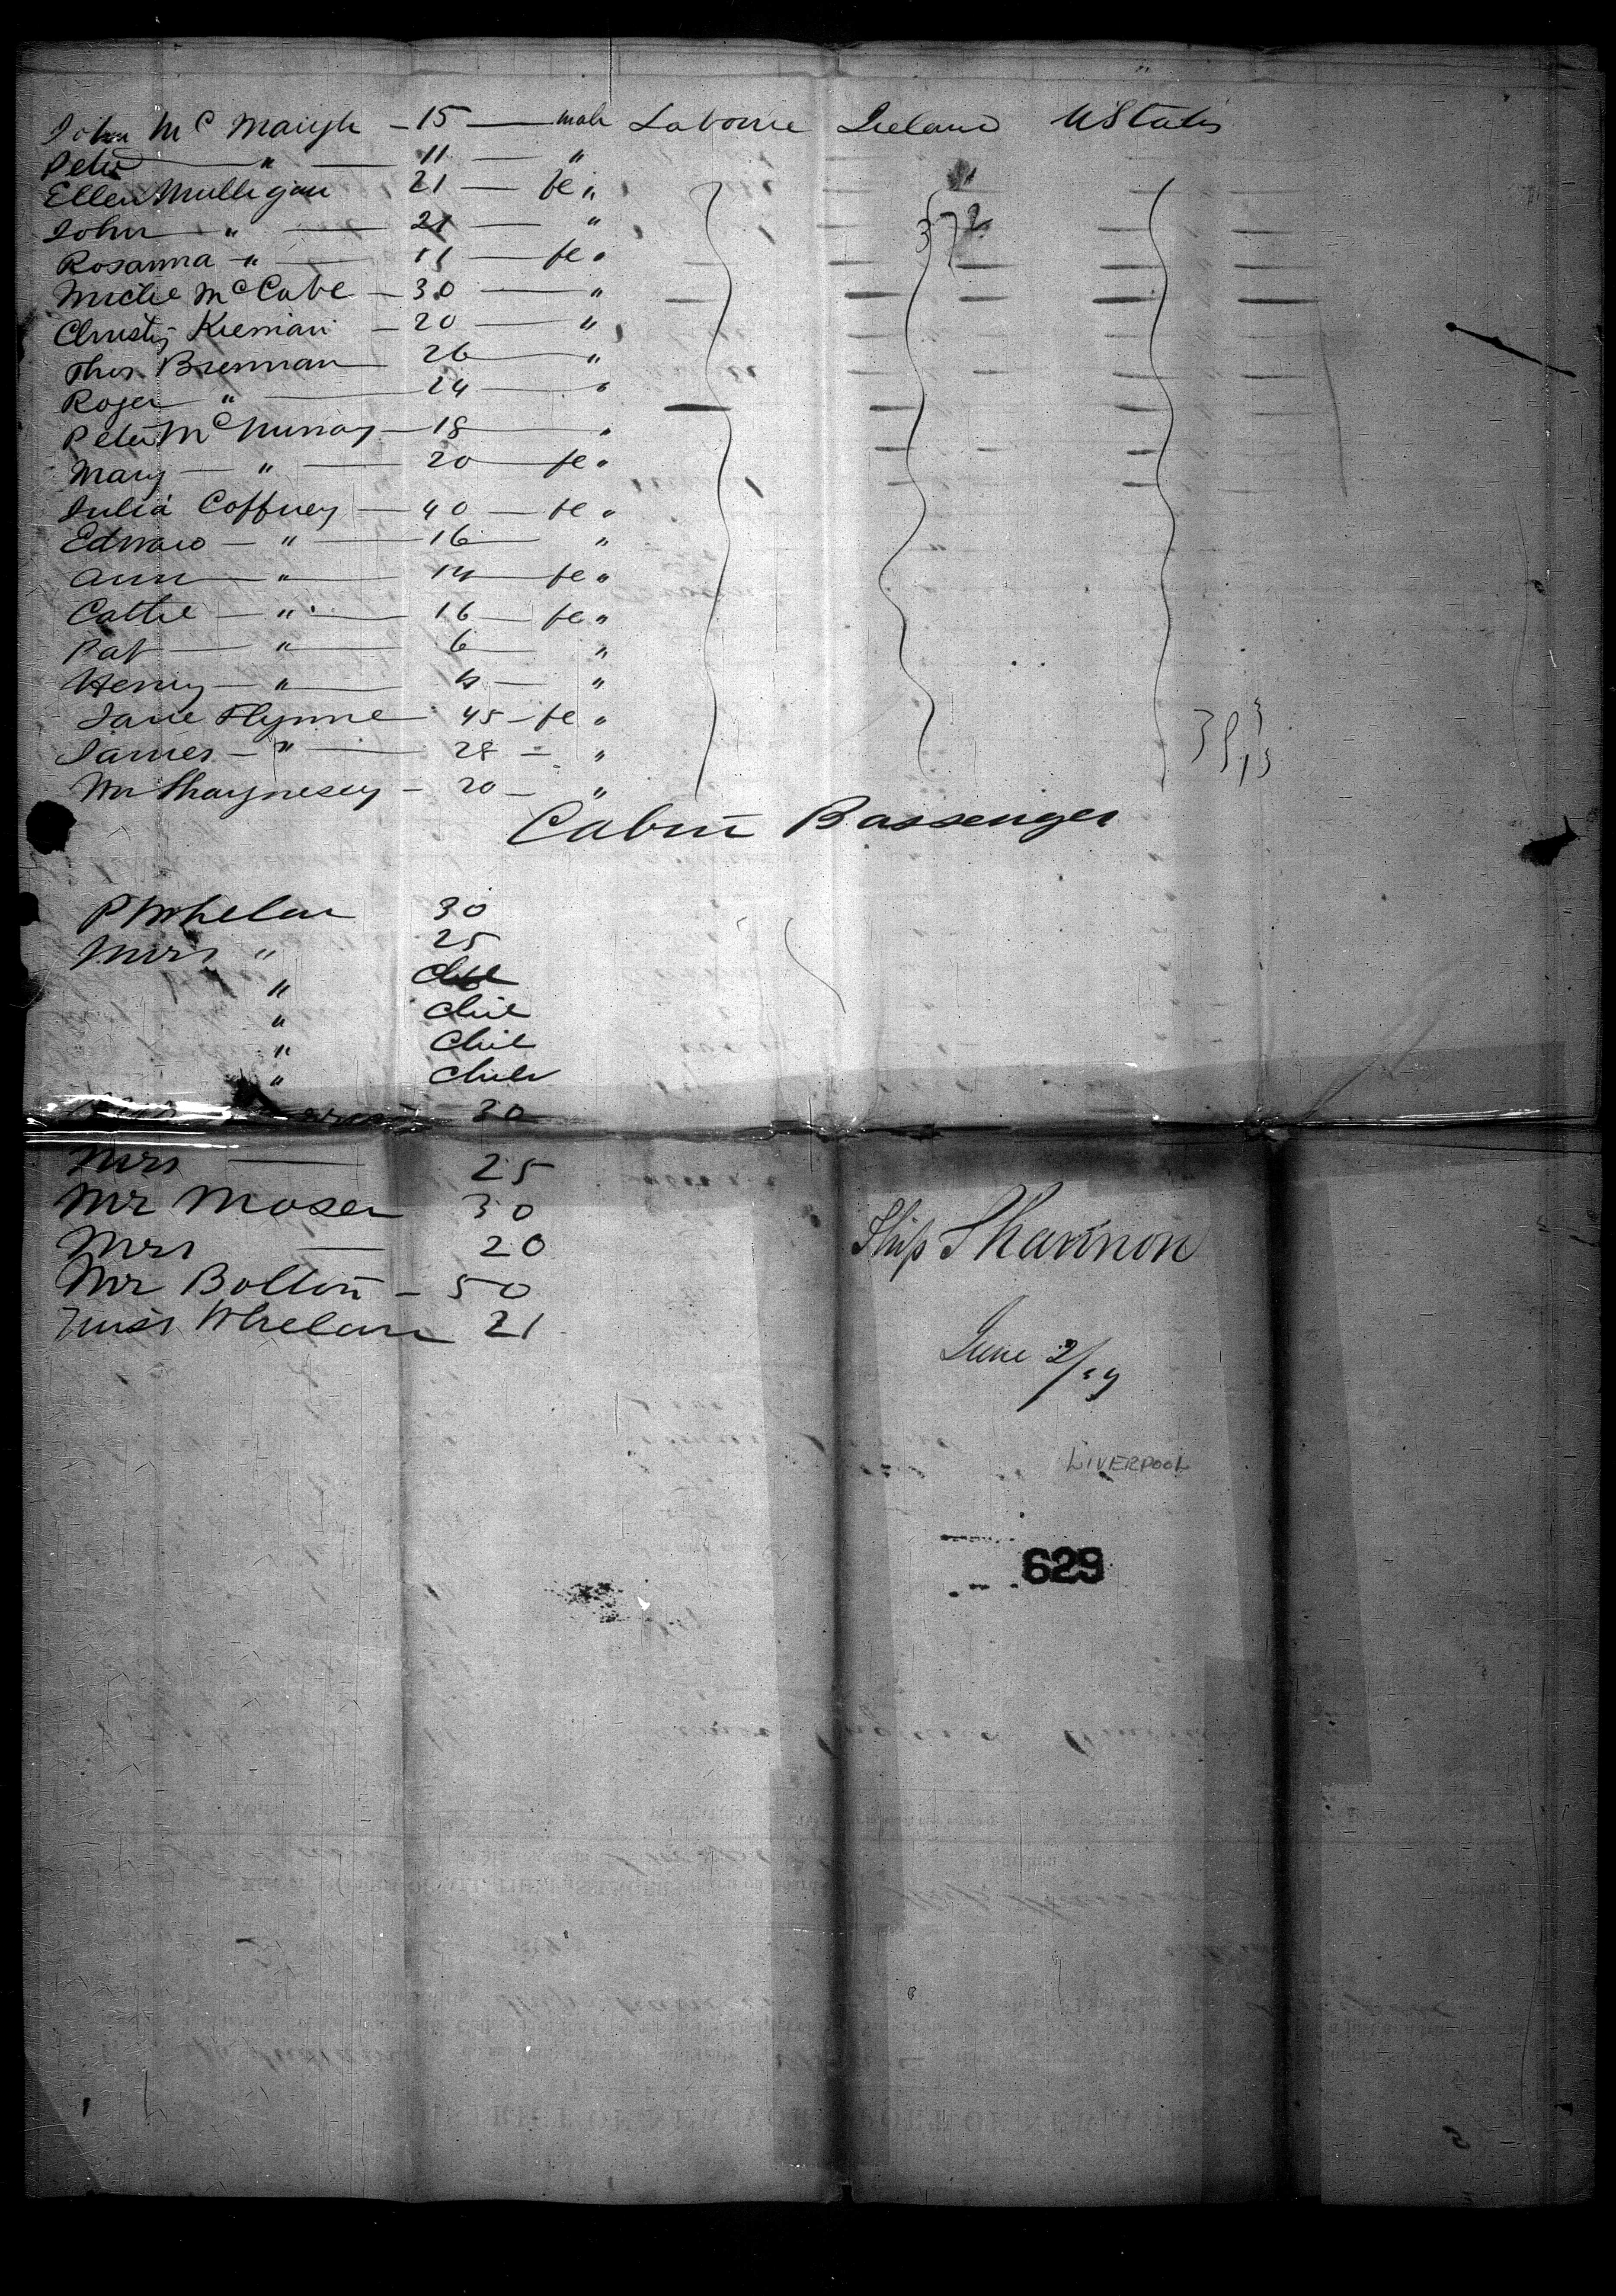 John Mc Maugh - 15 — male Laborer Ireland UStates
Peter " — 11 — "
Ellen Mulligan 21 — fe "
John " — 21 — "
Rosanna - " — 11 — fe "
372
Michl McCabe - 30 — "
Christy Kiernan - 20 — "
Thos Brennan 26 — "
Roger " — 24 — "
Peter Mc — 18 — "
Mary — " — 20 — fe "
Julia Coffney — 40 — fe "
Edward — " — 16 — "
Ann — " — 14 — fe "
Cathe — " — 16 — fe "
Pat — " — 6 — "
Henry — " — 4 — "
Jane Flynne 45 - fe "
James - " — 28 - "
Wm Shaynesey - 20 - "
Cabin Passenger
P Whelan 30
Mrs " 25
"
" Chil
" Chil
" Child
30
Mrs — 25
Mr Moser 30
Mrs — 20
Mr Bolton - 50
Miss Whelan 21
Ship Shannon
June 2/
LIVERPOOL
629